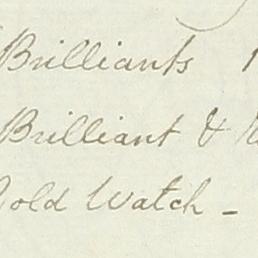 Brilliants
Brilliant &
Gold Watch -